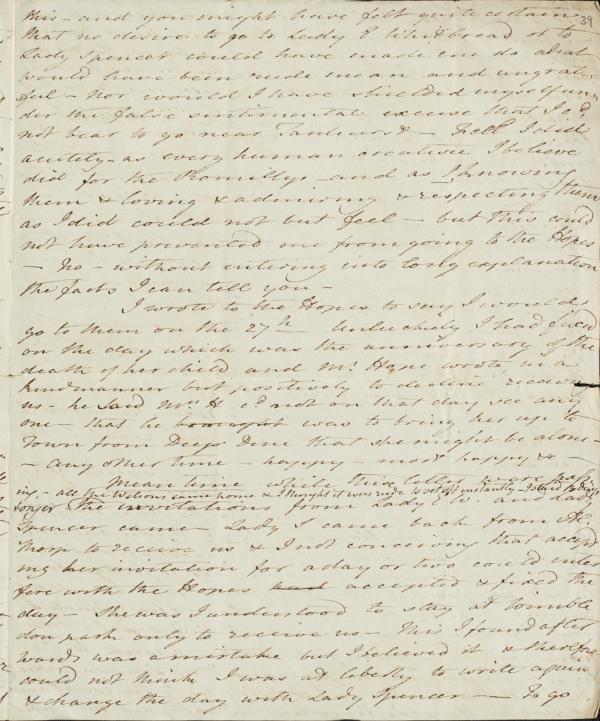 39
this - and you might have felt quite certain
that no desire to go to Lady E Whitbread or to
Lady Spencer could have made me do what
would have been rude mean and ungrate-
ful - Nor would I have shielded myself un-
der the false sentimental excuse that I cd
not bear to go near Tanhurst - Feel I did
acutely - as every human creature I believe
did for the Romillys - and as I knowing
them & loving & admiring & respecting them
as I did could not but feel - but this could
not have prevented me from going to the Hopes
- No - without entering into long explanation
the facts I can tell you -
I wrote to the Hopes to say I would
go to them on the 27th Unluckily I had fixed
on the day which was the anniversary of the
death of her child and Mr Hope wrote in a
kind manner but positively to decline receiving
us - he said Mrs H cd not on that day see any
one - that he brought was to bring her up to
Town from Deep Dene that she might be alone -
- any other time - happy - most happy & -
Mean time while these letters were pas
ing - all the Wilsons came home & I thought it was rude to set off instantly -
longer The invitations from Lady W and Lady
Spencer came - Lady S came back from
to receive us & I not conceiving that accept
ing her invitation for a day or two could inter
fere with the Hopes had accepted & fixed the
day - She was I understood to stay at Wimble
don park only to receive us - this I found after
wards was a mistake but I believed it & therefore
could not think I was at liberty to write again
& change the day with Lady Spencer - To go